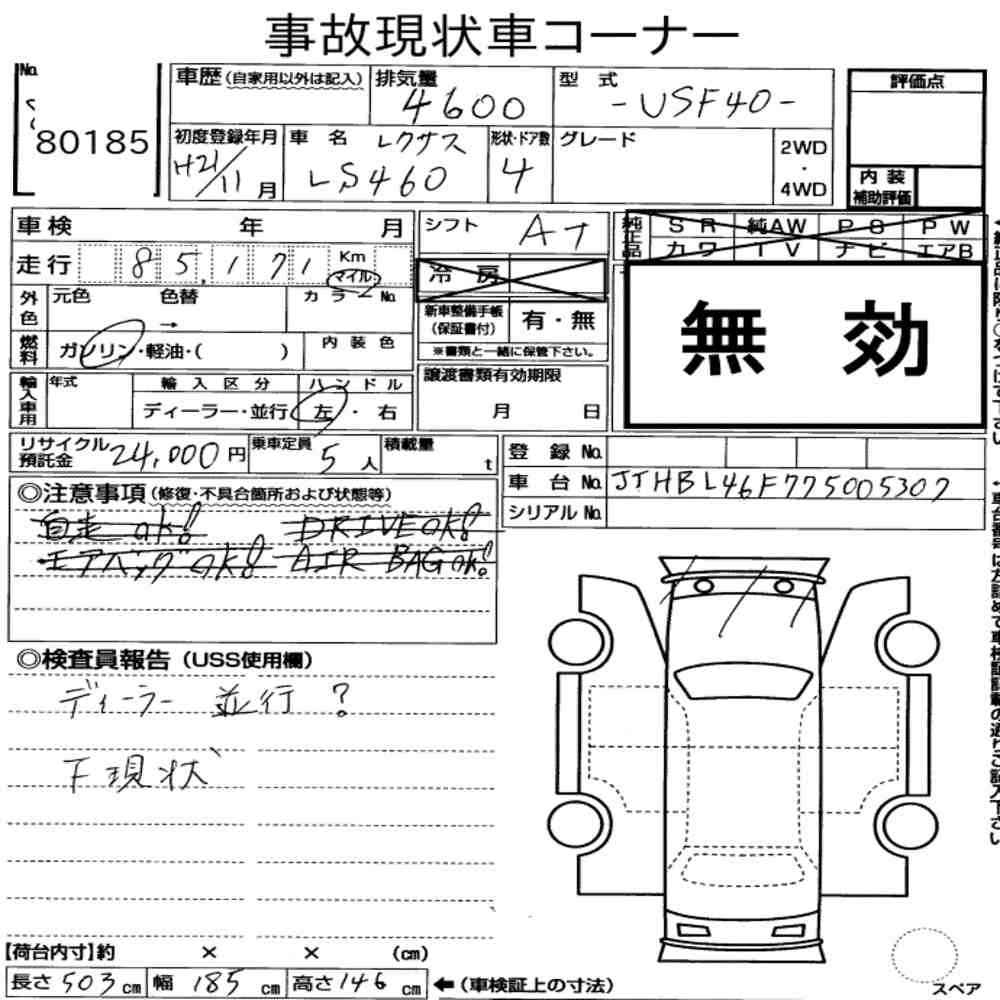 事故現状車コーナー
No.
80185
車歴(自家用以外は記入)
排気量
4600
型式
-USF40-
評価点
初度登録年月
H21/11月
車名
レクサス
LS460
形状・ドア数
4
グレード
2WD
・
4WD
内装
補助評価
車検 年 月
シフト
AT
純正品
SR 純AW PS PW
カワ TV ナビ エアB
走行
85,171
Km
マイル
冷房
外色
元色 色替 カラーNo.
→
新車整備手帳
(保証書付)
有・無
※書類と一緒に保管下さい。
無効
燃料
ガソリン・軽油・( )
内装色
輸入車用
年式
輸入区分
ディーラー・並行
ハンドル
左・右
譲渡書類有効期限
月 日
リサイクル
預託金
24,000円
乗車定員
5人
積載量
t
登録No.
車台No.
JTHBL46F775005307
シリアルNo.
◎注意事項(修復・不具合箇所および状態等)
自走ok! DRIVE ok!
エアバッグok! AIR BAG ok!
◎検査員報告(USS使用欄)
ディーラー 並行 ?
下現状
【荷台内寸】約 × × (cm)
長さ503cm 幅185cm 高さ146cm
←(車検証上の寸法)
スペア